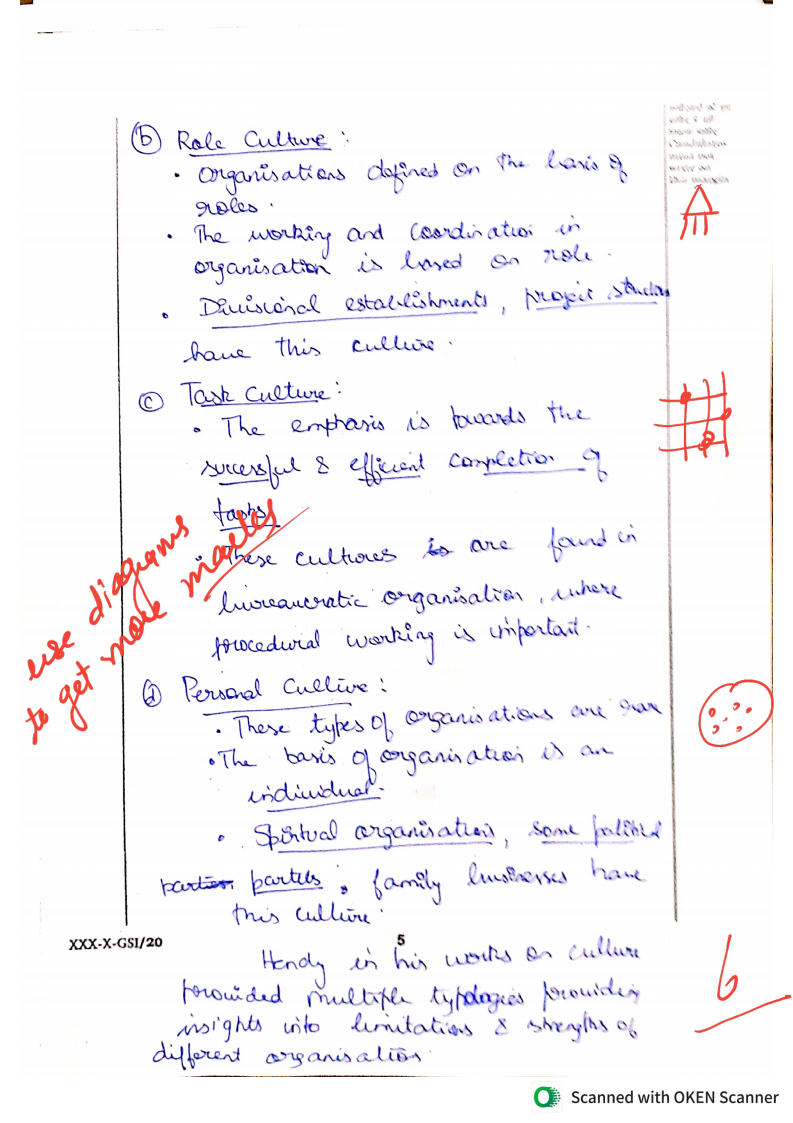 (b) Role Culture :
• Organisations defined on the basis of
roles.
• The working and coordination in
organisation is based on role.
• Divisional establishments, project
have this culture.
(c) Task Culture :
• The emphasis is towards the
successful & efficient completion of
tasks
• These cultures is are found in
bureaucratic organisation, where
procedural working is important.
use diagrams
to get more marks
(d) Personal Culture :
• These types of organisations are rare
• The basis of organisation is an
individual.
• Spiritual organisations, some political
parties, family businesses have
this culture.
XXX-X-GSI/20
5
Handy in his works on culture
provided multiple typologies providing
insights into limitations & strengths of
different organisation.
6
Scanned with OKEN Scanner